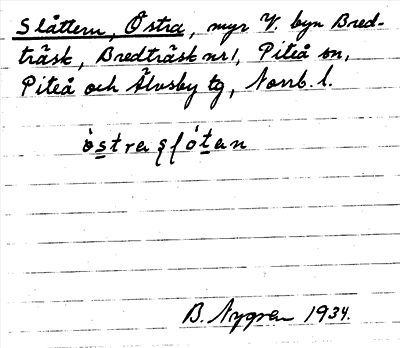 Slåttern, Östra, myr V. byn Bred-
träsk, Bredträsk nr 1, Piteå sn,
Piteå och Älvsby tg, Norrb. l.
B. Nygren 1934.